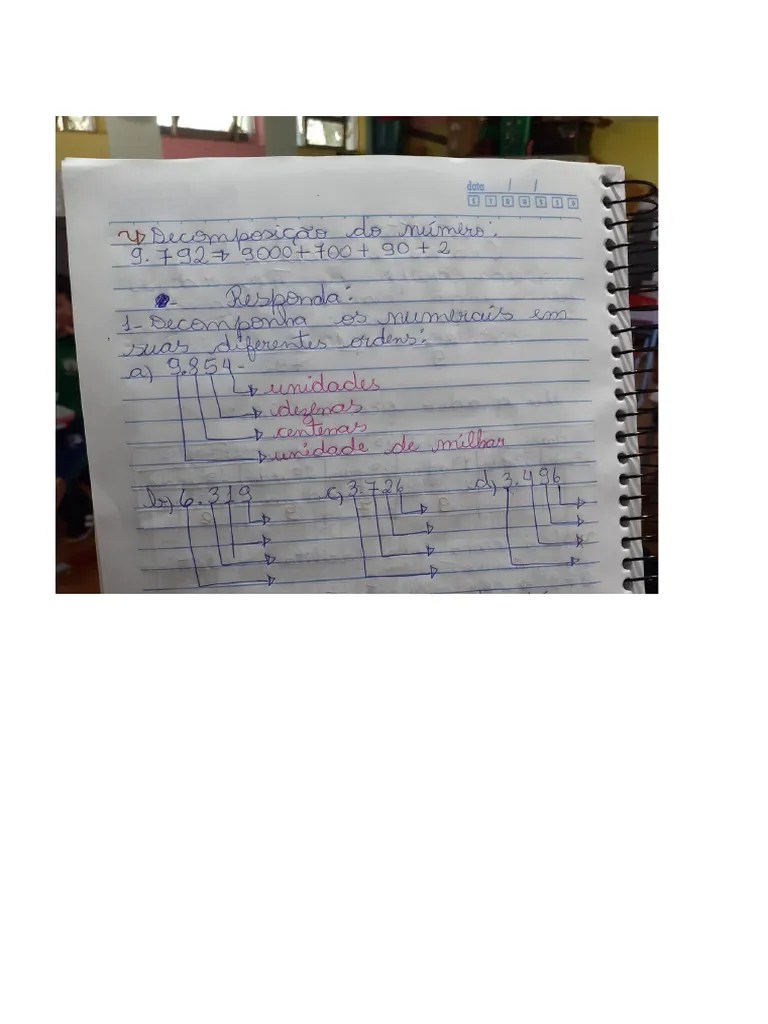 data / /
Decomposição do número:
9.792→ 9000+700+ 90+2
- Responda:
1- Decomponha os numerais em
suas diferentes ordens:
a) 9.854-
unidades
dezenas
centenas
unidade de milhar
b) 6.319 c) 3.726 d) 3.496